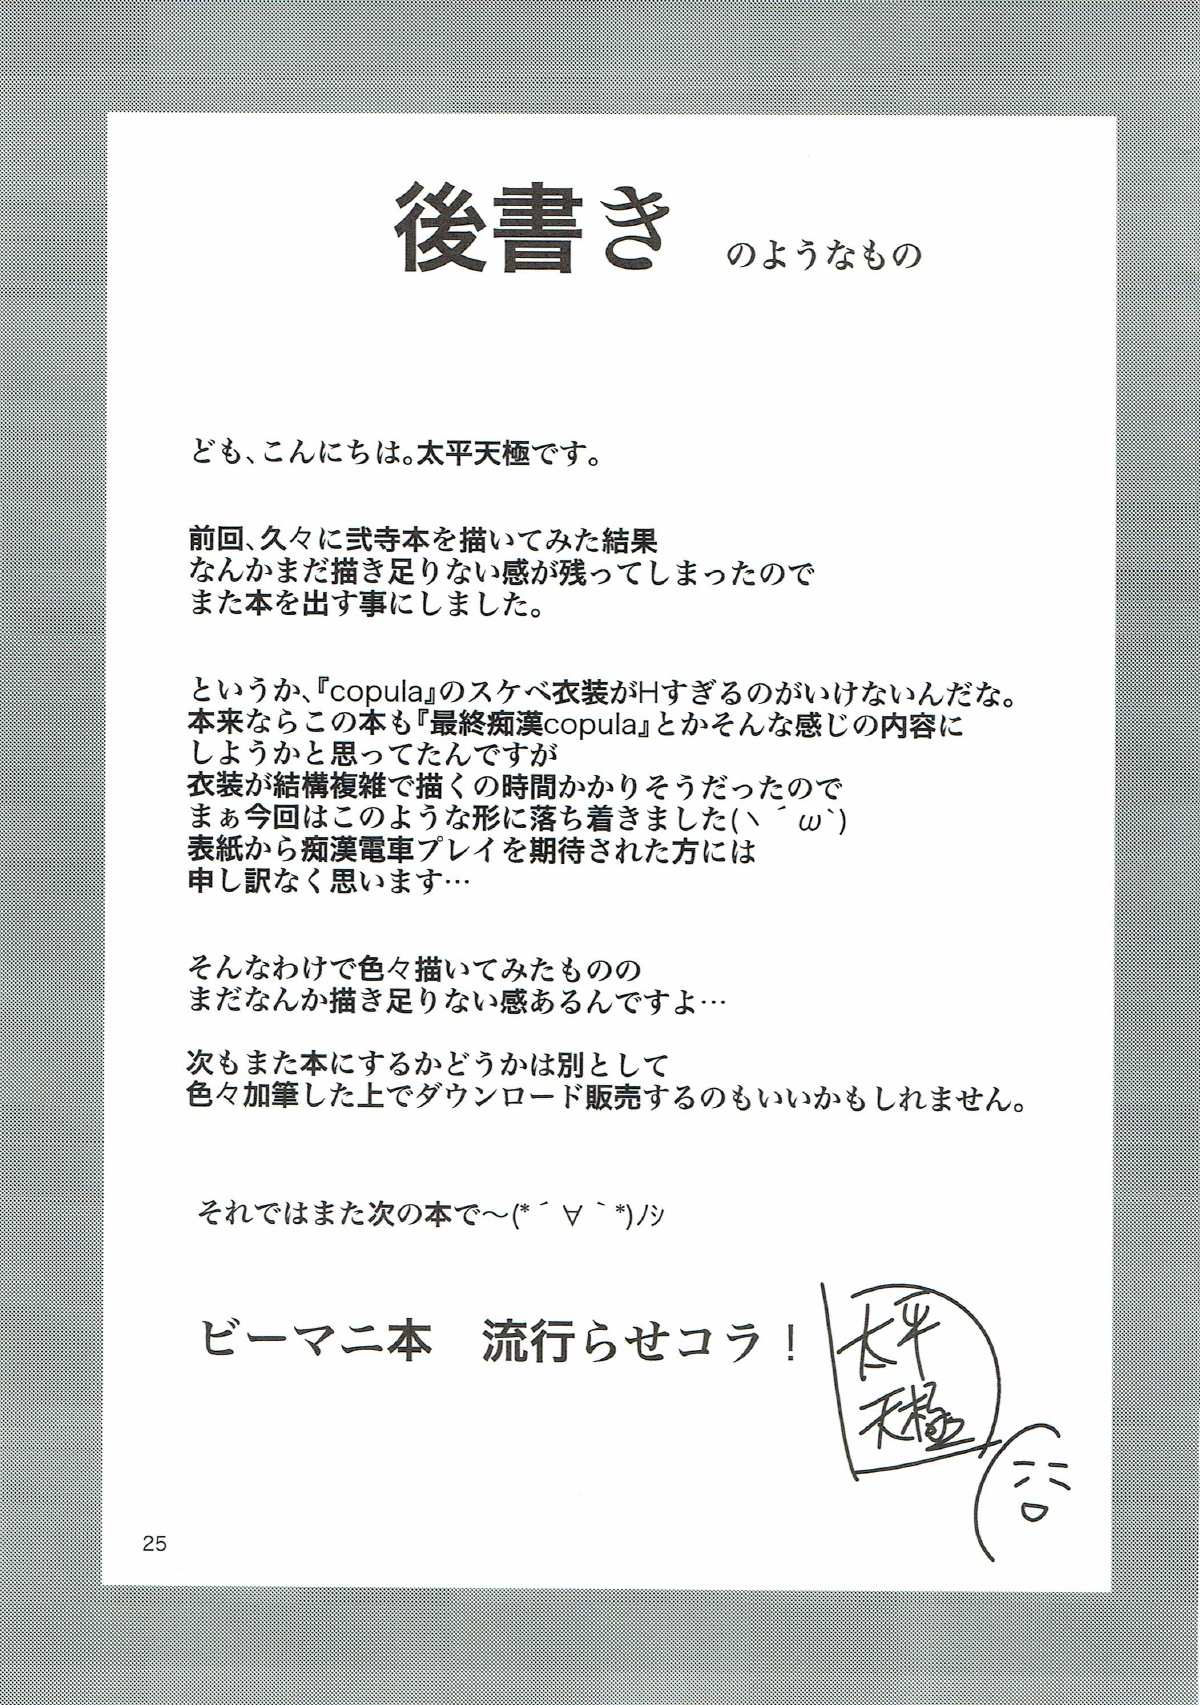 後書き のようなもの
ども、こんにちは。太平天極です。
前回、久々に弐寺本を描いてみた結果
なんかまだ描き足りない感が残ってしまったので
また本を出す事にしました。
というか、『copula』のスケベ衣装がHすぎるのがいけないんだな。
本来ならこの本も『最終痴漢copula』とかそんな感じの内容に
しようかと思ってたんですが
衣装が結構複雑で描くの時間かかりそうだったので
まぁ今回はこのような形に落ち着きました(ヽ´ω`)
表紙から痴漢電車プレイを期待された方には
申し訳なく思います…
そんなわけで色々描いてみたものの
まだなんか描き足りない感あるんですよ…
次もまた本にするかどうかは別として
色々加筆した上でダウンロード販売するのもいいかもしれません。
それではまた次の本で～(*´∀｀*)ﾉｼ
ビーマニ本　流行らせコラ！
太平
天極
25